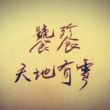 饕餮
天地有雪